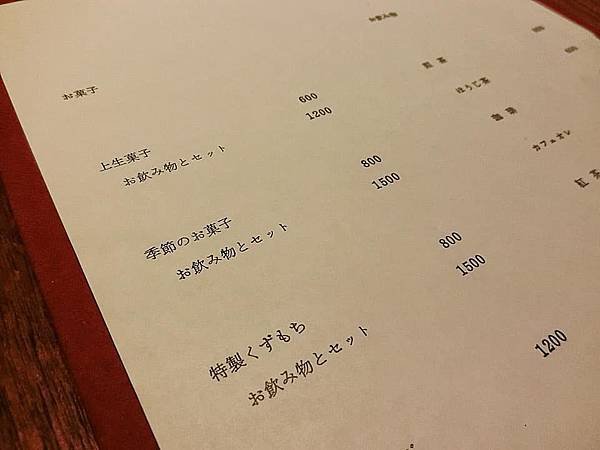 お菓子
上生菓子 600
お飲み物とセット 1200
季節のお菓子 800
お飲み物とセット 1500
特製くずもち 800
お飲み物とセット 1500
1200
お飲み物
ほうじ茶
珈琲
カフェオレ
紅茶